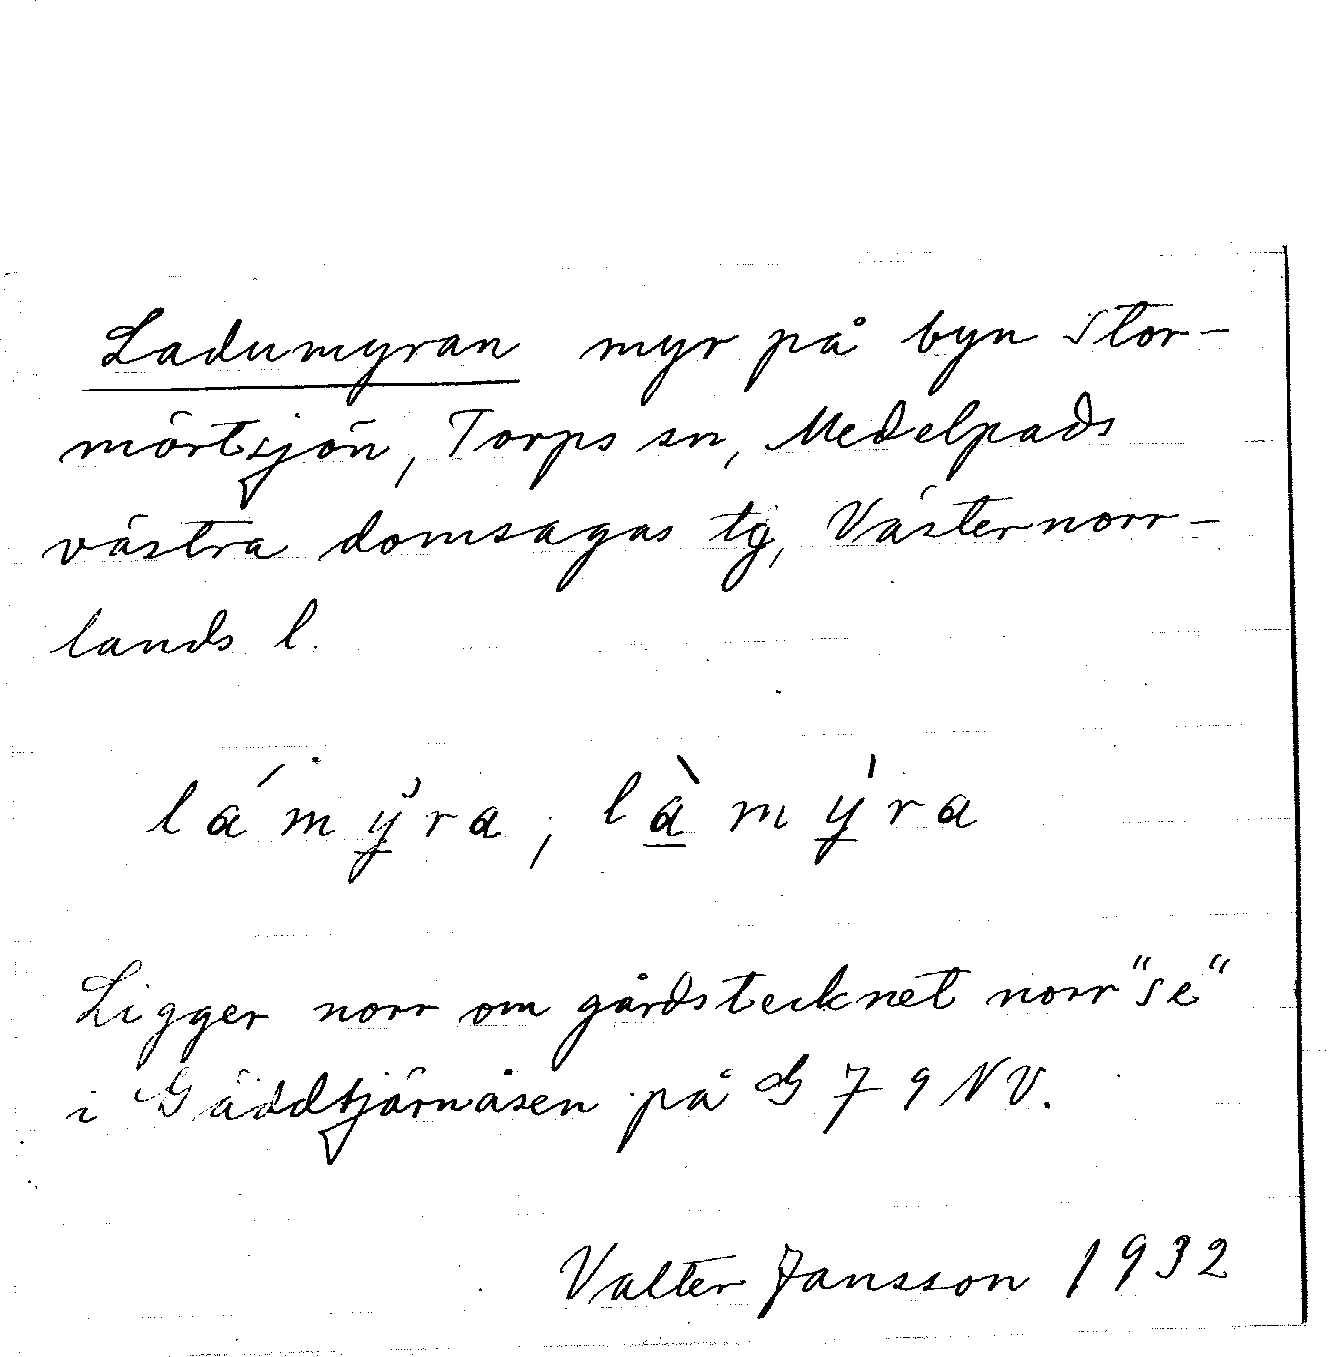 Ladumyran myr på byn Stor-
mörtsjön, Torps sn, Medelpads
västra domsagas tg, Västernorr-
lands l.
lámy̠̆ra, là̠my̠̍ra
Ligger norr om gårdstecknet norr "se"
i Gäddtjärnåsen på G 79 NV.
Valter Jansson 1932